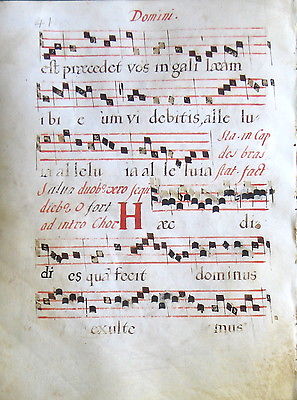 41
Domini.
est præcedet vos in gali læam
ibi e um vi debitis, alle lu
Sta. in Cap
ia al le lu ia al le luia
des bras
stat. fact
Salua duob9 vero seqú
dieb9 O fort
ad intro Chor Hæc di
di es qua fecit dominus
exulte mus